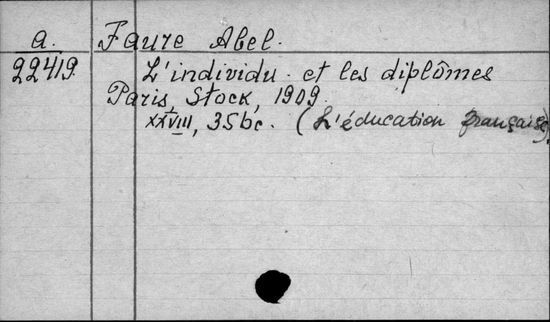 a. Faure Abel.
22419 L'individu et les diplômes
Paris, Stock, 1909.
XXVIII, 356c. (L'éducation française).